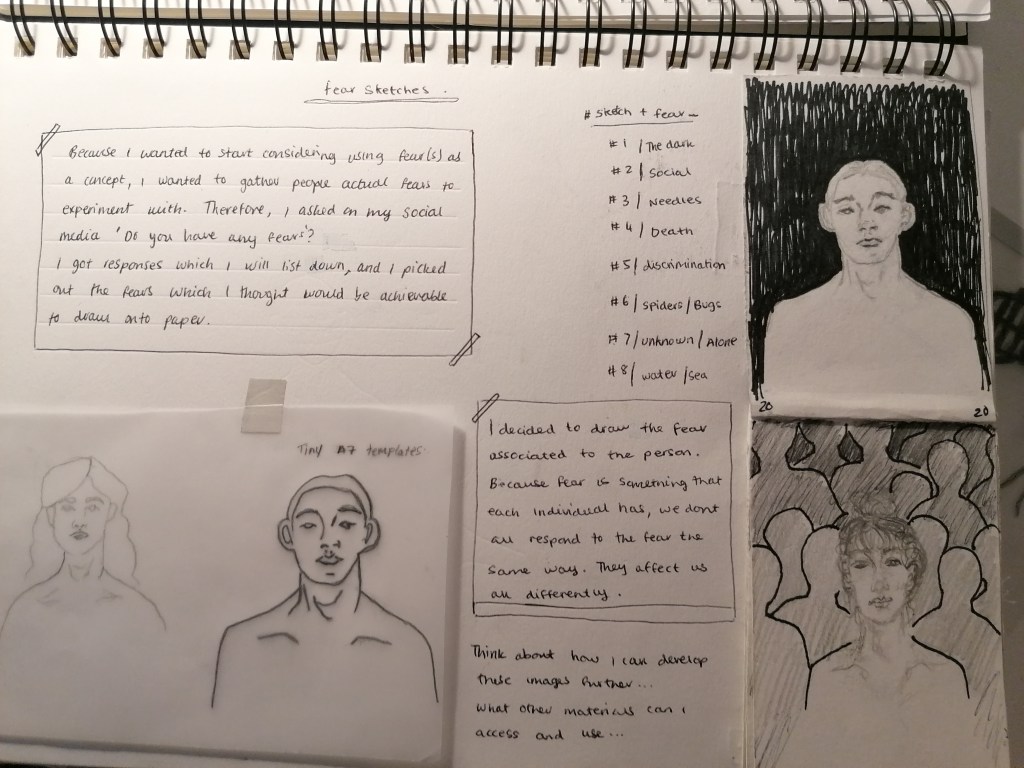 fear sketches.
Because I wanted to start considering using fear(s) as
a concept, I wanted to gather people actual fears to
experiment with. Therefore, I asked on my social
media 'Do you have any fears'?
I got responses which I will list down, and I picked
out the fears which I thought would be achievable
to draw onto paper.
# sketch + fear -
#1 / The dark
#2 / Social
#3 / Needles
#4 / Death
#5 / discrimination
#6 / spiders / Bugs
#7 / unknown / Alone
#8 / water / sea
20 20
Tiny A7 templates
I decided to draw the fear
associated to the person.
Because fear is something that
each individual has, we dont
all respond to the fear the
same way. They affect us
all differently.
Think about how I can develop
these images further...
What other materials can I
access and use...